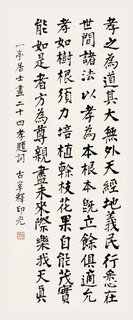 孝之為道其大無外天經地義民行悉在
世間諸法以孝為本根本既立餘俱適允
孝如樹根須力培植幹枝花果自能茂實
能如是者方為尊親盡未來際樂我天真
一亭居士畫二十四孝題詞 古莘釋印光